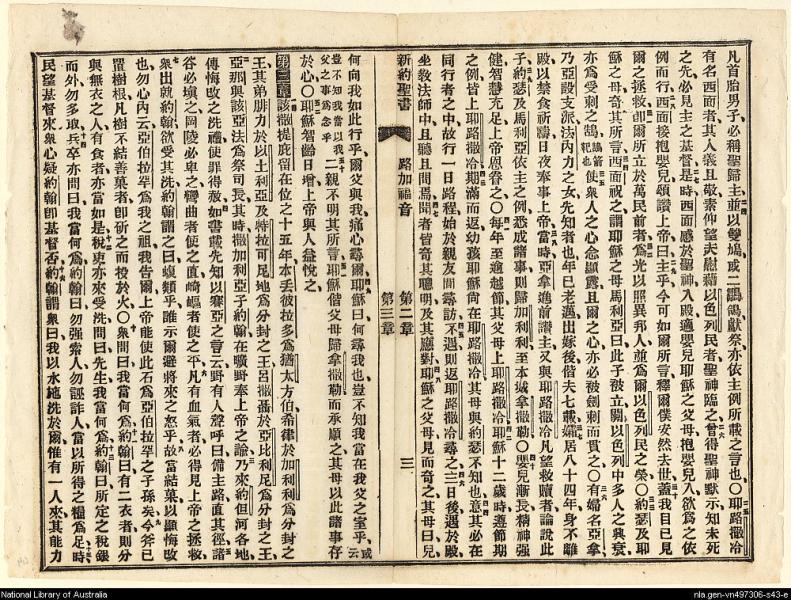 凡首胎男子必稱聖歸主並以雙鳩或二鶵鴿獻祭亦依主例所載之言也〇耶路撒冷
有名西面者其人義且敬素仰望夫慰藉以色列民者聖神臨之曾得聖神默示知未死
之先必見主之基督是時西面感於聖神入殿適嬰兒耶穌之父母抱嬰兒入欲爲之依
例而行西面接抱嬰兒頌讚上帝曰主乎今可如爾所言釋爾僕安然去世蓋我目已見
爾之拯救卽爾所立於萬民前者爲光以照異邦人並爲爾以色列民之榮〇約瑟及耶
穌之母奇其所言西面祝之謂耶穌之母馬利亞曰此子被立關以色列中多人之興衰
亦爲受刺之鵠鵠箭靶也使衆人之心念顯露且爾之心亦必被劍刺而貫之〇有婦名亞拿
乃亞設支派法內力之女先知者也年已老邁出嫁後偕夫七載孀居八十四年身不離
殿以禁食祈禱日夜奉事上帝當時亞拿進前讚主又與耶路撒冷凡望救贖者論說此
子約瑟及馬利亞依主之例悉成諸事則歸加利利至本城拿撒勒〇嬰兒漸長精神強
健智慧充足上帝恩眷之〇每年至逾越節其父母上耶路撒冷耶穌十二歲時遵節期
之例皆上耶路撒冷期滿而返幼孩耶穌尚在耶路撒冷其母與約瑟不知也意其必在
同行者之中故行一日路程始於親友間尋訪不遇則返耶路撒冷尋之三日後遇於殿
坐敎法師中且聽且問焉聞者皆奇其聰明及其應對耶穌之父母見而奇之其母曰兒
新約聖書 路加福音 第二章 第三章 三
何向我如此行乎爾父與我痛心尋爾耶穌曰何尋我也豈不知我當在我父之室乎或云
豈不知我當以我父之事爲念乎二親不明其所言耶穌偕父母歸拿撒勒而承順之其母以此諸事存
於心〇耶穌智齡日增上帝與人益悅之
第三章該撒提庇留在位之十五年本丢彼拉多爲猶太方伯希律於加利利爲分封之
王其弟腓力於以土利亞及特拉可尼地爲分封之王呂撒聶於亞比利尼爲分封之王
亞那與該亞法爲祭司長其時撒加利亞子約翰在曠野奉上帝之諭乃來約但河各地
傳悔改之洗禮使罪得赦如書載先知以賽亞之言云野有人聲呼曰備主路直其徑諸
谷必塡之岡陵必卑之彎曲者使之直崎嶇者使之平凡有血氣者必得見上帝之拯救
衆出就約翰欲受其洗約翰謂之曰蝮類乎誰示爾避將來之怒乎故當結果以顯悔改
也勿心內云亞伯拉罕爲我之祖我告爾上帝能使此石爲亞伯拉罕之子孫矣今斧已
置樹根凡樹不結善果者卽斫之而投於火〇衆問曰我當何爲約翰曰有二衣者則分
與無衣之人有食者亦當如是稅吏亦來受洗問曰先生我當何爲約翰曰所定之稅銀
而外勿多取兵卒亦問曰我當何爲約翰曰勿強索人勿誣詐人當以所得之糧爲足時
民望基督來衆心疑約翰卽基督否約翰謂衆曰我以水施洗於爾惟有一人來其能力
National Library of Australia
nla.gen-vn497306-s43-e